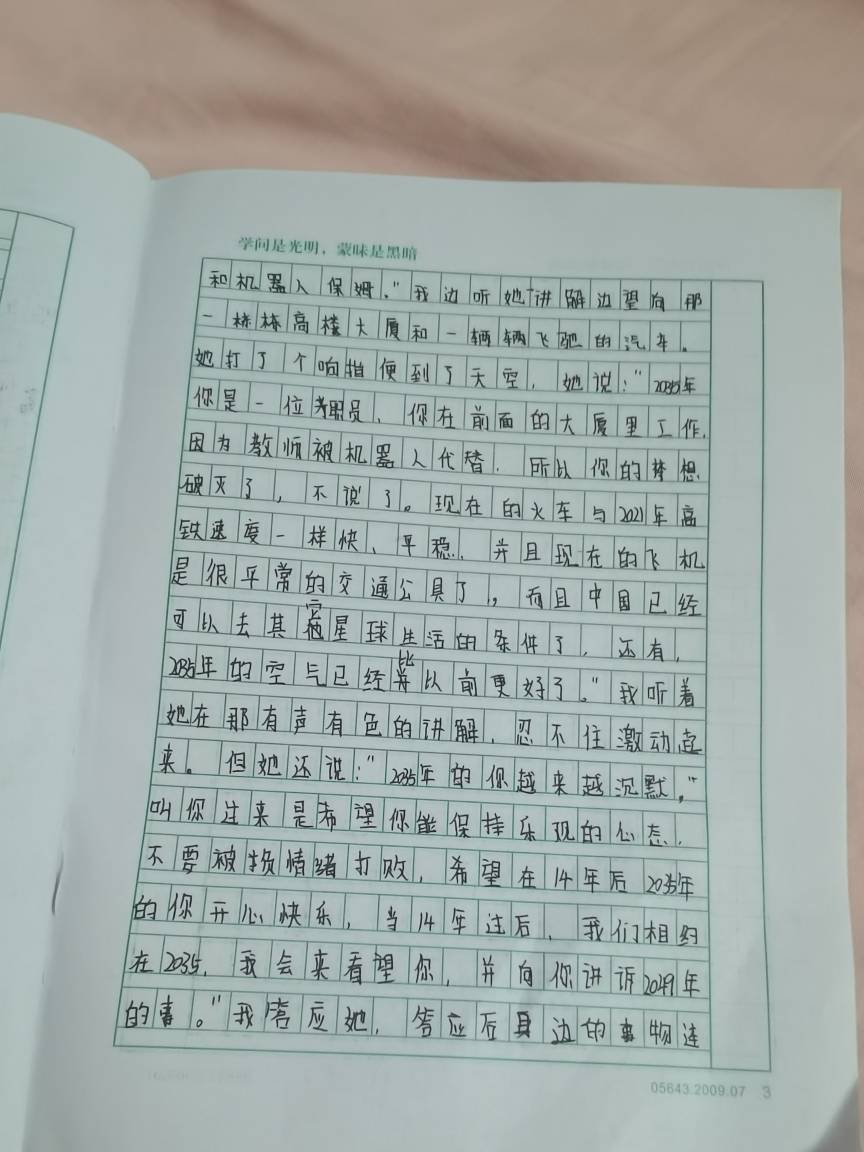 学问是光明，蒙昧是黑暗
和机器人保姆。"我边听她讲解边望向那
一栋栋高楼大厦和一辆辆飞驰的汽车。
她打了个响指便到了天空，她说："2035年
你是一位职员，你在前面的大厦里工作，
因为教师被机器人代替，所以你的梦想
破灭了，不说了。现在的火车与2021年高
铁速度一样快、平稳，并且现在的飞机
是很平常的交通公具了，，而且中国已经
可以去其它星球生活的条件了，还有，
2035年的空气已经比以前更好了。"我听着
她在那有声有色的讲解，忍不住激动起
来。但她还说："2035年的你越来越沉默，"
叫你过来是希望你能保持乐观的心态，
不要被负情绪打败，希望在14年后2035年
的你开心快乐，当14年过后，我们相约
在2035，我会来看望你，并向你讲诉2049年
的事。"我答应她，答应后身边的事物连
05643.2009.07 3